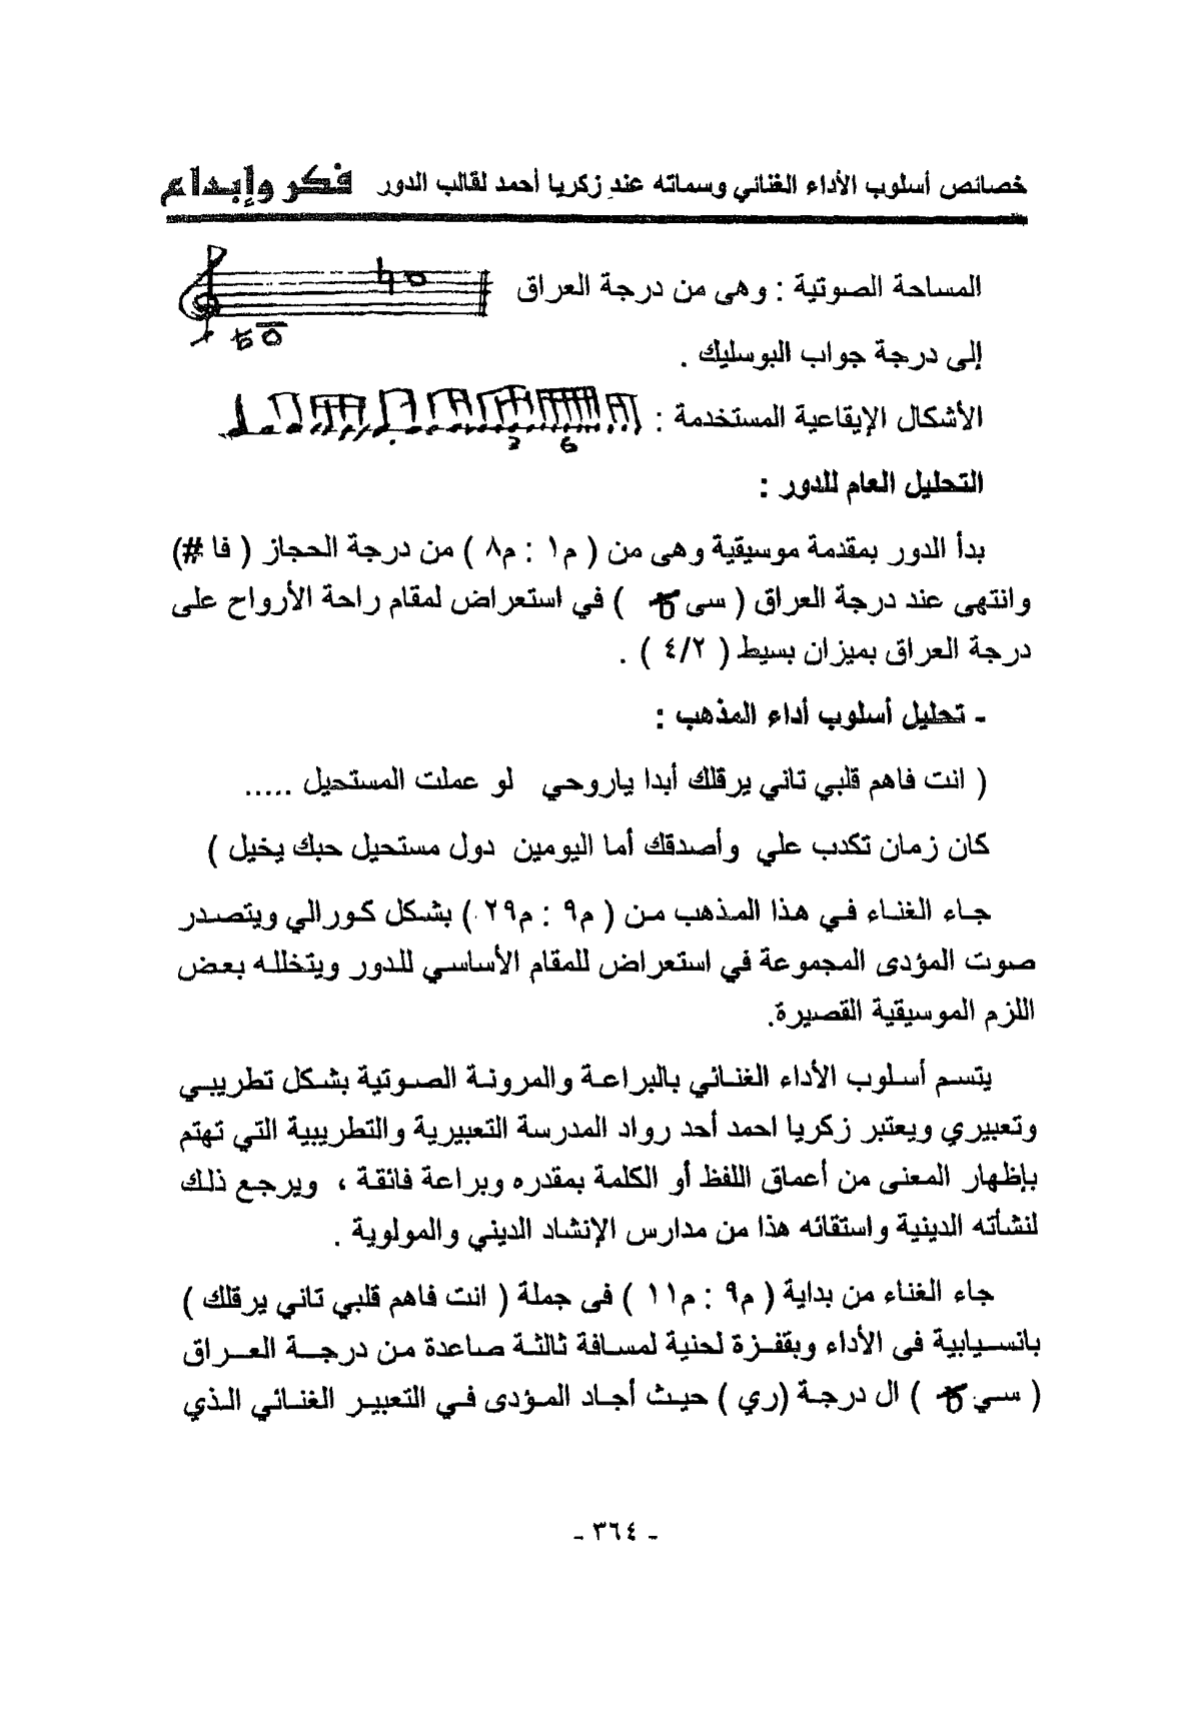 خصائص أسلوب الأداء الغنائي وسماته عند زكريا أحمد لقالب الدور فكر وإبداع
المساحة الصوتية : وهى من درجة العراق
إلى درجة جواب البوسليك .
الأشكال الإيقاعية المستخدمة :
3 6
التحليل العام للدور :
بدأ الدور بمقدمة موسيقية وهى من ( م١ : م٨ ) من درجة الحجاز ( فا #)
وانتهى عند درجة العراق ( سى ) في استعراض لمقام راحة الأرواح على
درجة العراق بميزان بسيط ( ٤/٢ ) .
- تحليل أسلوب أداء المذهب :
( انت فاهم قلبي تاني يرقلك أبدا ياروحي لو عملت المستحيل .....
كان زمان تكدب علي وأصدقك أما اليومين دول مستحيل حبك يخيل )
جاء الغناء في هذا المذهب من ( م٩ : م٢٩ ) بشكل كورالي ويتصدر
صوت المؤدى المجموعة في استعراض للمقام الأساسي للدور ويتخلله بعض
اللزم الموسيقية القصيرة.
يتسم أسلوب الأداء الغنائي بالبراعة والمرونة الصوتية بشكل تطريبي
وتعبيري ويعتبر زكريا احمد أحد رواد المدرسة التعبيرية والتطريبية التي تهتم
بإظهار المعنى من أعماق اللفظ أو الكلمة بمقدره وبراعة فائقة ، ويرجع ذلك
لنشأته الدينية واستقائه هذا من مدارس الإنشاد الديني والمولوية .
جاء الغناء من بداية ( م٩ : م١١ ) فى جملة ( انت فاهم قلبي تاني يرقلك )
بانسيابية فى الأداء وبقفزة لحنية لمسافة ثالثة صاعدة من درجة العراق
( سي ) ال درجة (ري ) حيث أجاد المؤدى في التعبير الغنائي الذي
- ٣٦٤ -